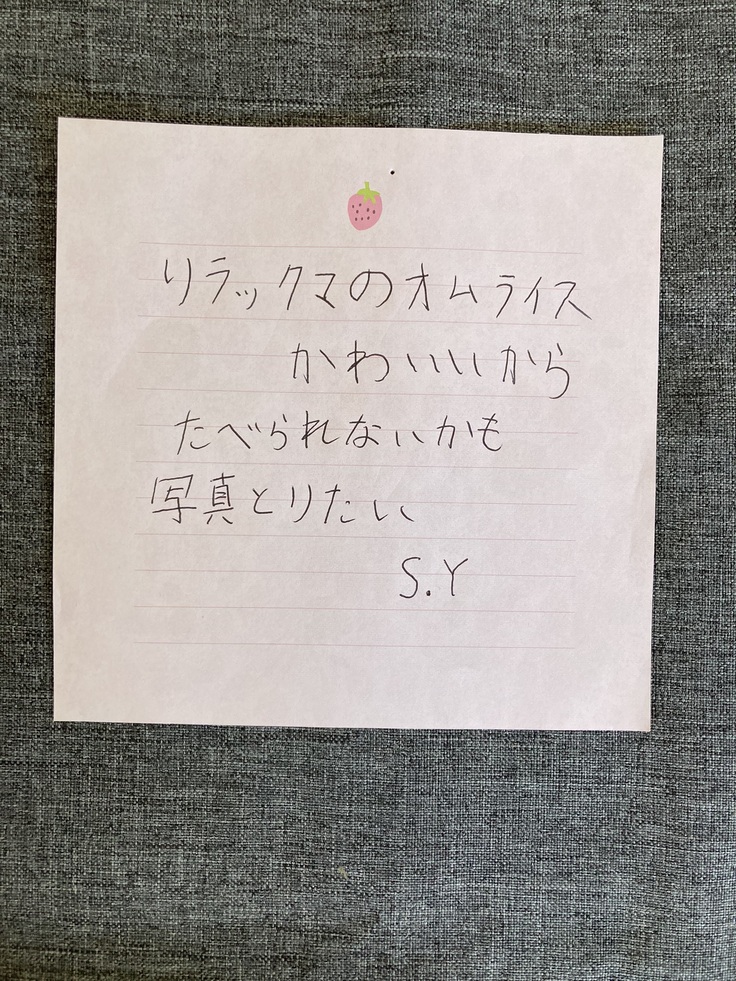 リラックマのオムライス
かわいいから
たべられないかも
写真とりたい
S.Y